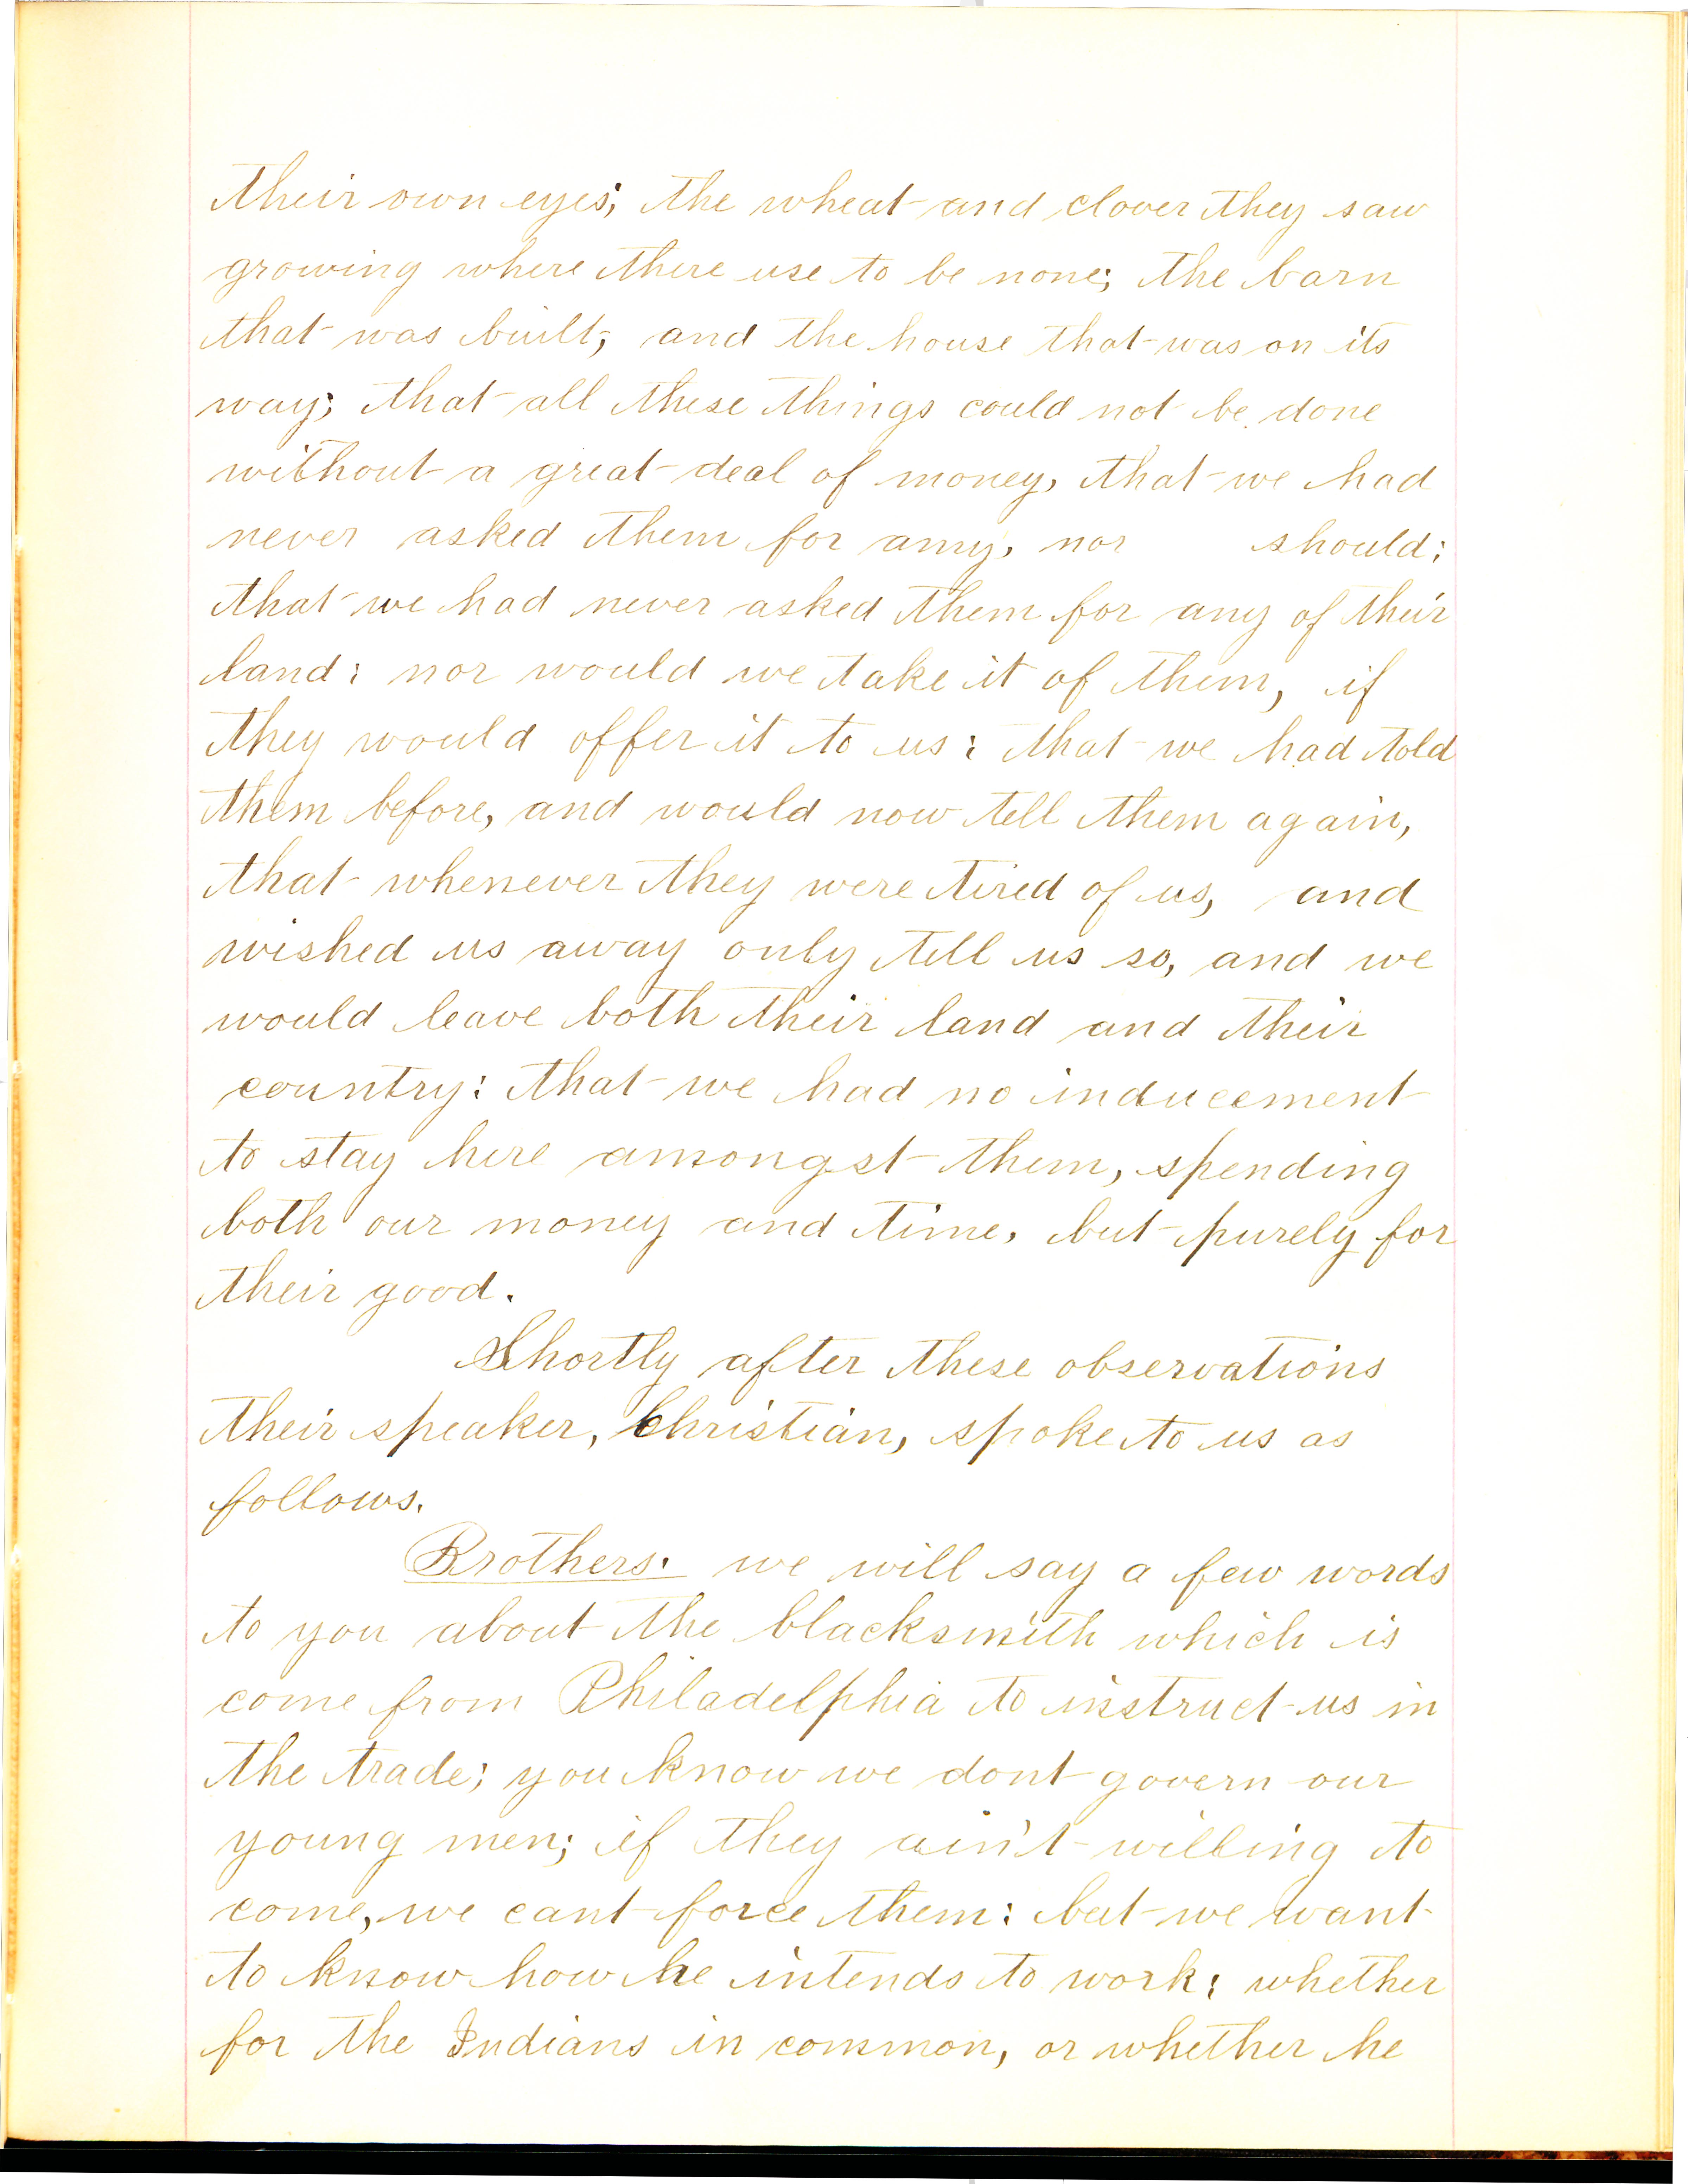 their own eyes; the wheat and clover they saw
growing where there use to be none; the barn
that was built; and the house that was on its
way; that all these things could not be done
without a great deal of money, that we had
never asked them for any, nor should;
that we had never asked them for any of their
land; nor would we take it of them, if
they would offer it to us; that we had told
them before, and would now tell them again,
that whenever they were tired of us, and
wished us away only tell us so, and we
would leave both their land and their
country: that we had no inducement
to stay here amongst them, spending
both our money and time, but purely for
their good.
Shortly after these observations
their speaker, Christian, spoke to us as
follows.
Brothers. we will say a few words
to you about the blacksmith which is
come from Philadelphia to instruct us in
the trade; you know we dont govern our
young men; if they ain't willing to
come, we cant force them: but we want
to know how he intends to work; whether
for the Indians in common, or whether he